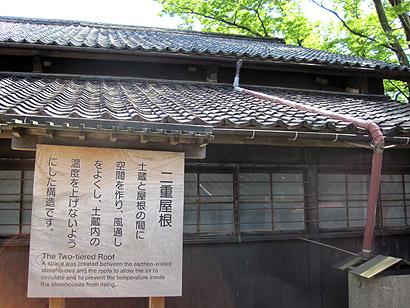 二重屋根
土蔵と屋根の間に
空間を作り、風通し
をよくし、土蔵内の
温度を上げないよう
にした構造です。
The Two-tiered Roof
A space was created between the earthen-walled
storehouses and the roofs to allow the air to
circulate and to prevent the temperature inside
the storehouses from rising.